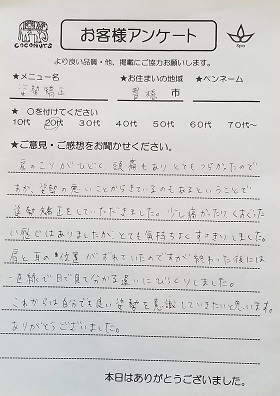 COCONUTS
お客様アンケート
Spa
より良い品質・他、掲載にご協力お願いします。
★メニュー名 ★お住まいの地域 ★ペンネーム
姿勢矯正 豊橋 市
★ 〇を付けてください
10代 20代 30代 40代 50代 60代 70代～
★ご意見・ご感想をお聞かせください。
肩のこりがひどく、頭痛もありとてもつらかったので
すが、姿勢の悪いことからきているのもあるということで
姿勢矯正をしていただきました。少し痛かったりくすぐった
い感じはありましたがとても気持ちよくすっきりしました。
肩と耳の位置がずれていたのですが終わった後には
一直線で目で見て分かる違いにびっくりしました。
これからは自分でも良い姿勢を意識していきたいと思います。
ありがとうございました。
本日はありがとうございました。